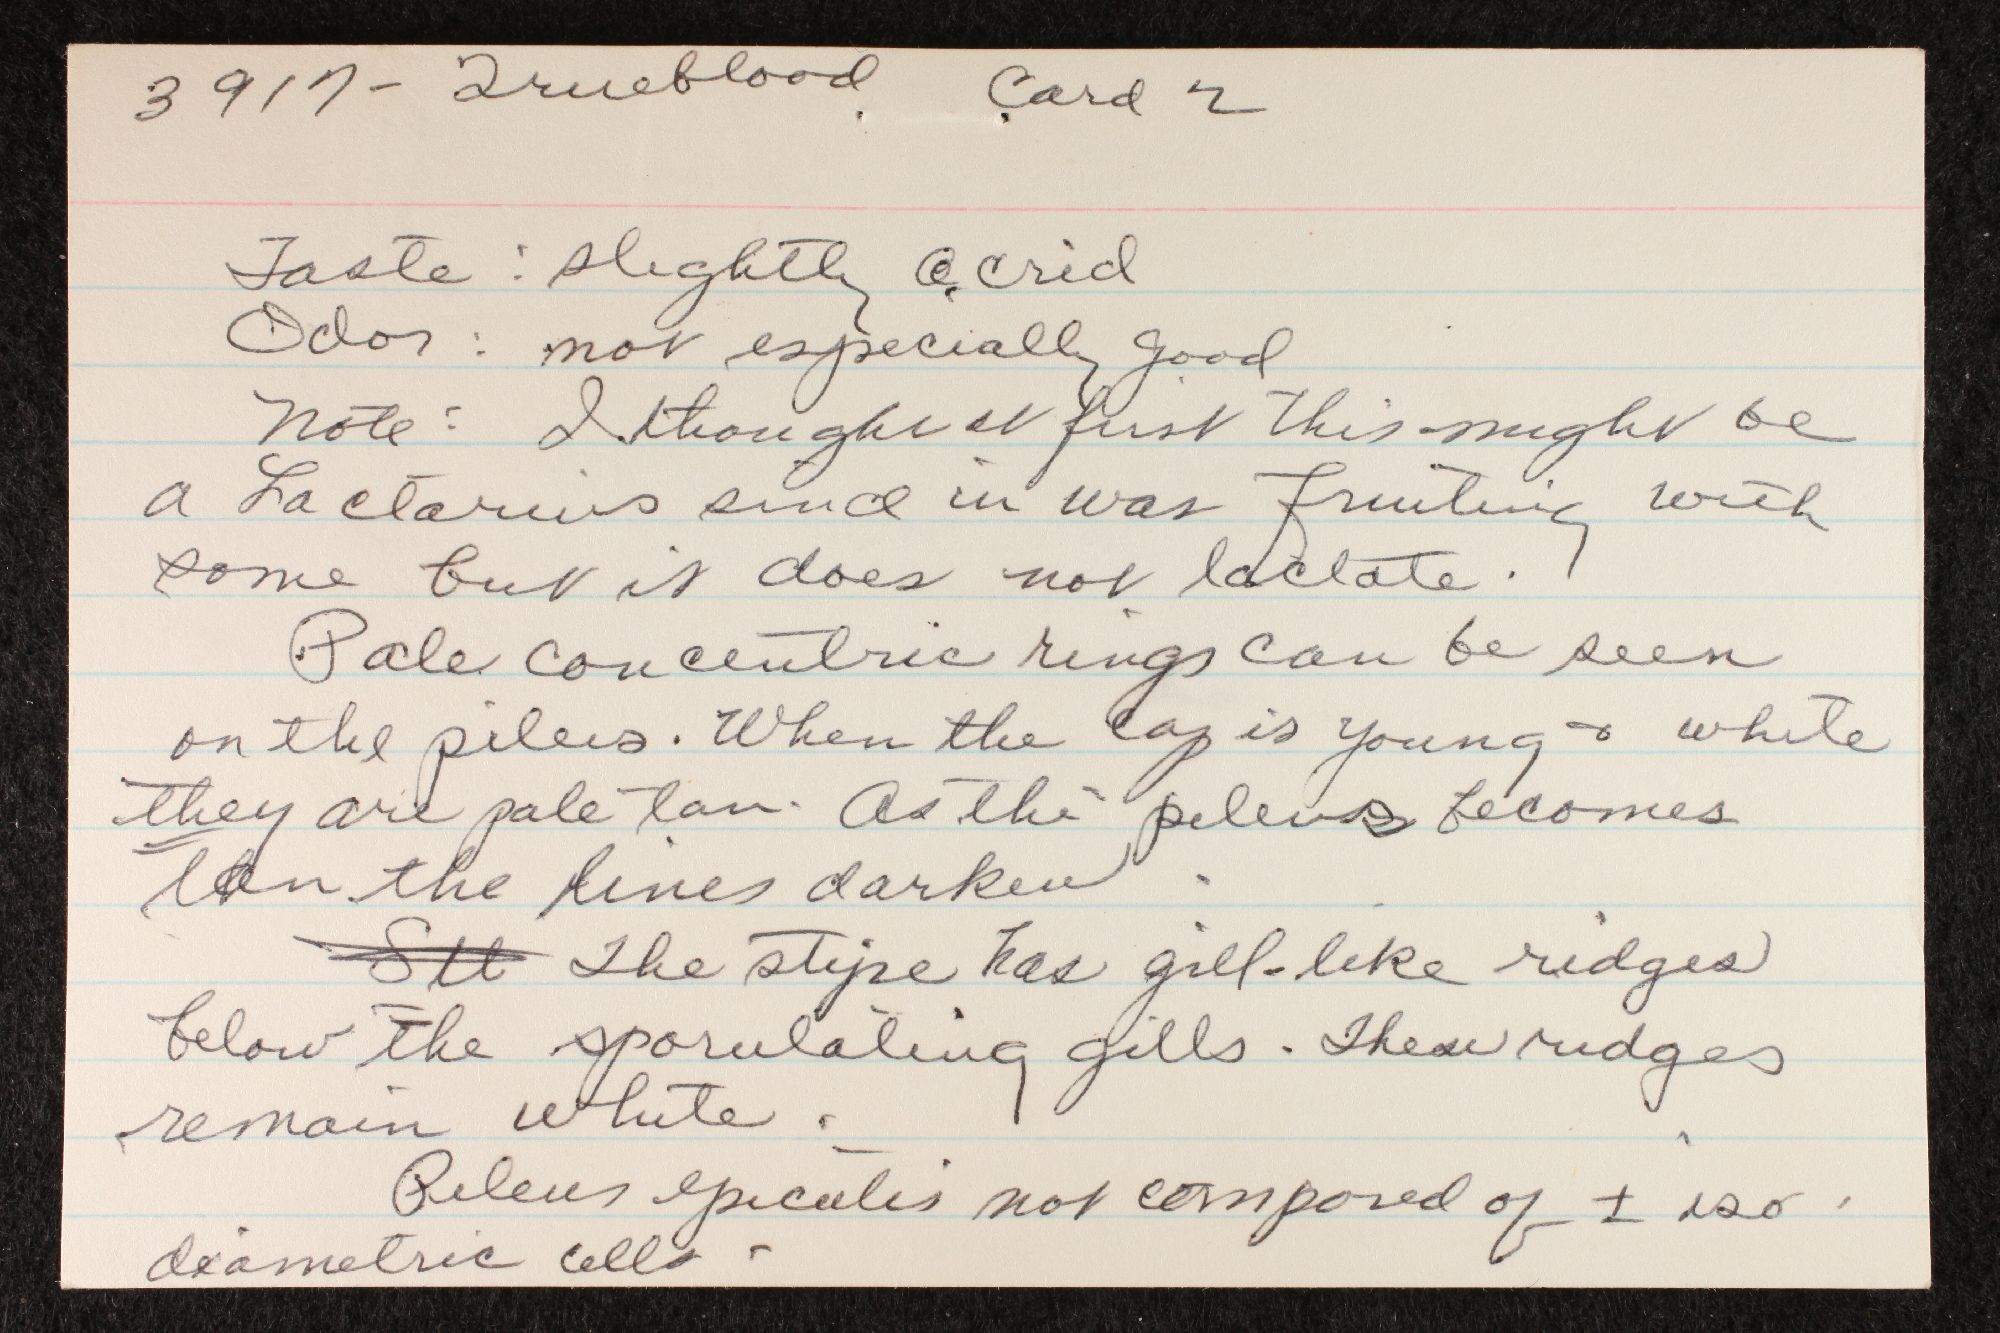 3917- Trueblood Card 2
Taste: slightly acrid
Odor: not especially good
Note: I thought at first this might be
a Lactarius since in was fruiting with
some but it does not lactate.
Pale concentric rings can be seen
on the pileus. When the cap is young & white
they are pale tan. As the pileus becomes
tan the lines darken.
Stt The stipe has gill-like ridges
below the sporulating gills. These ridges
remain white.
Pileus epicutis not composed of ± iso-
diametric cells.